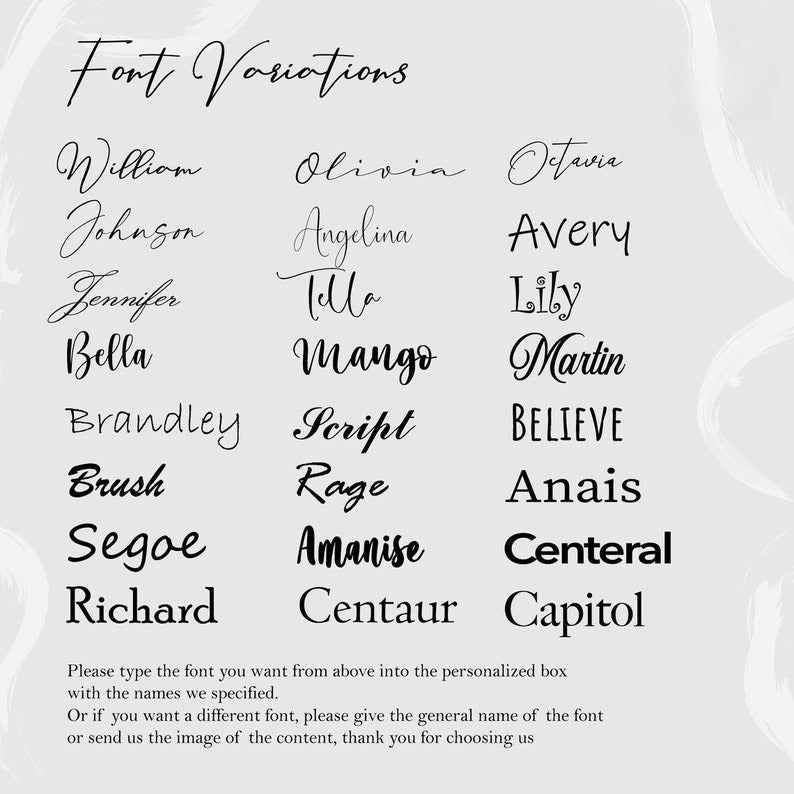 Font Variations
William Olivia Octavia
Johnson Angelina Avery
Jennifer Tella Lily
Bella Mango Martin
Brandley Script BELIEVE
Brush Rage Anais
Segoe Amanise Centeral
Richard Centaur Capitol
Please type the font you want from above into the personalized box
with the names we specified.
Or if you want a different font, please give the general name of the font
or send us the image of the content, thank you for choosing us